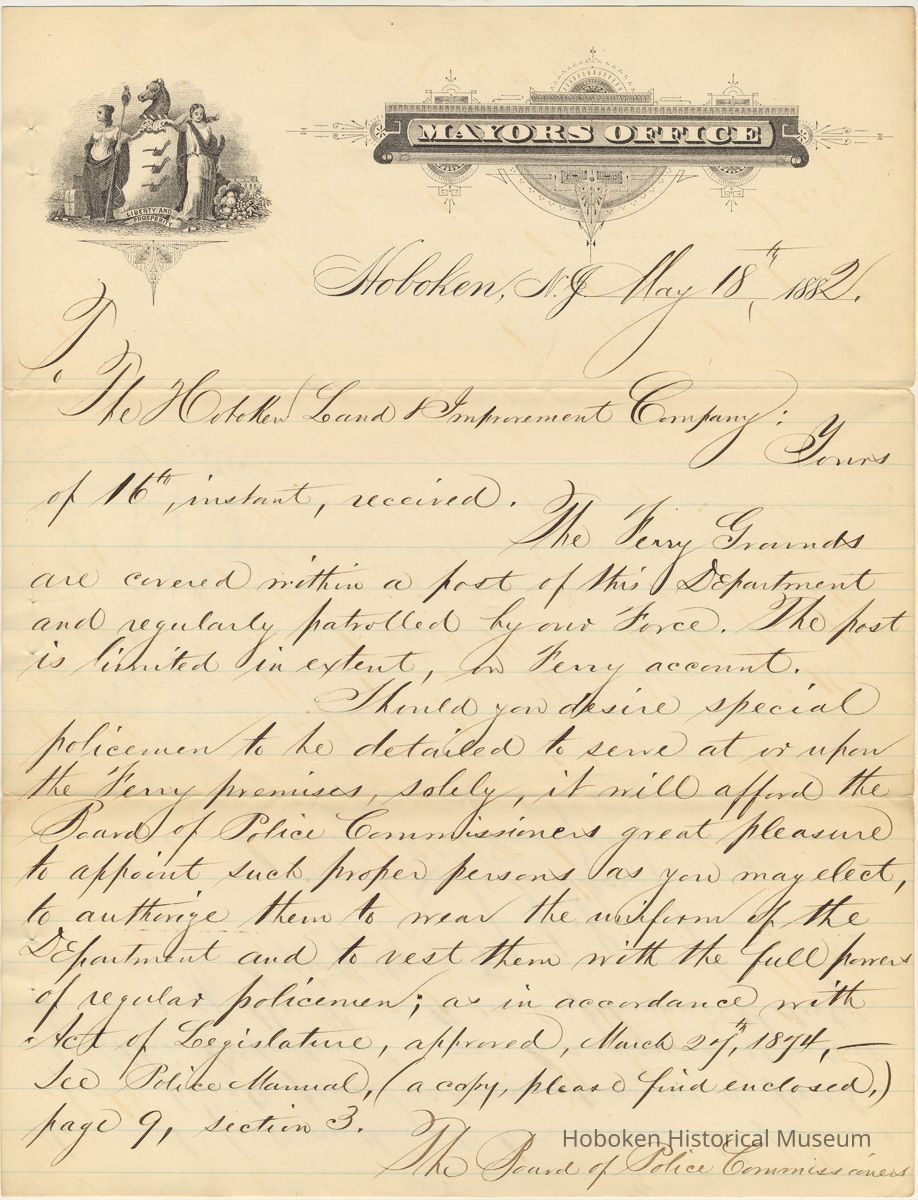 MAYORS OFFICE
LIBERTY AND
PROSPERITY
Hoboken, N.J. May 18th, 1882.
To
The Hoboken Land & Improvement Company:
Yours
of 16th, instant, received.
The Ferry Grounds
are covered within a post of this Department
and regularly patrolled by our Force. The post
is limited in extent, on Ferry account.
Should you desire special
policemen to be detailed to serve at or upon
the Ferry premises, solely, it will afford the
Board of Police Commissioners great pleasure
to appoint such proper persons as you may elect,
to authorize them to wear the uniform of the
Department and to vest them with the full powers
of regular policemen; as in accordance with
Act of Legislature, approved, March 27th, 1874, —
See Police Manual, (a copy, please find enclosed,)
page 9, section 3.
The Board of Police Commissioners
Hoboken Historical Museum